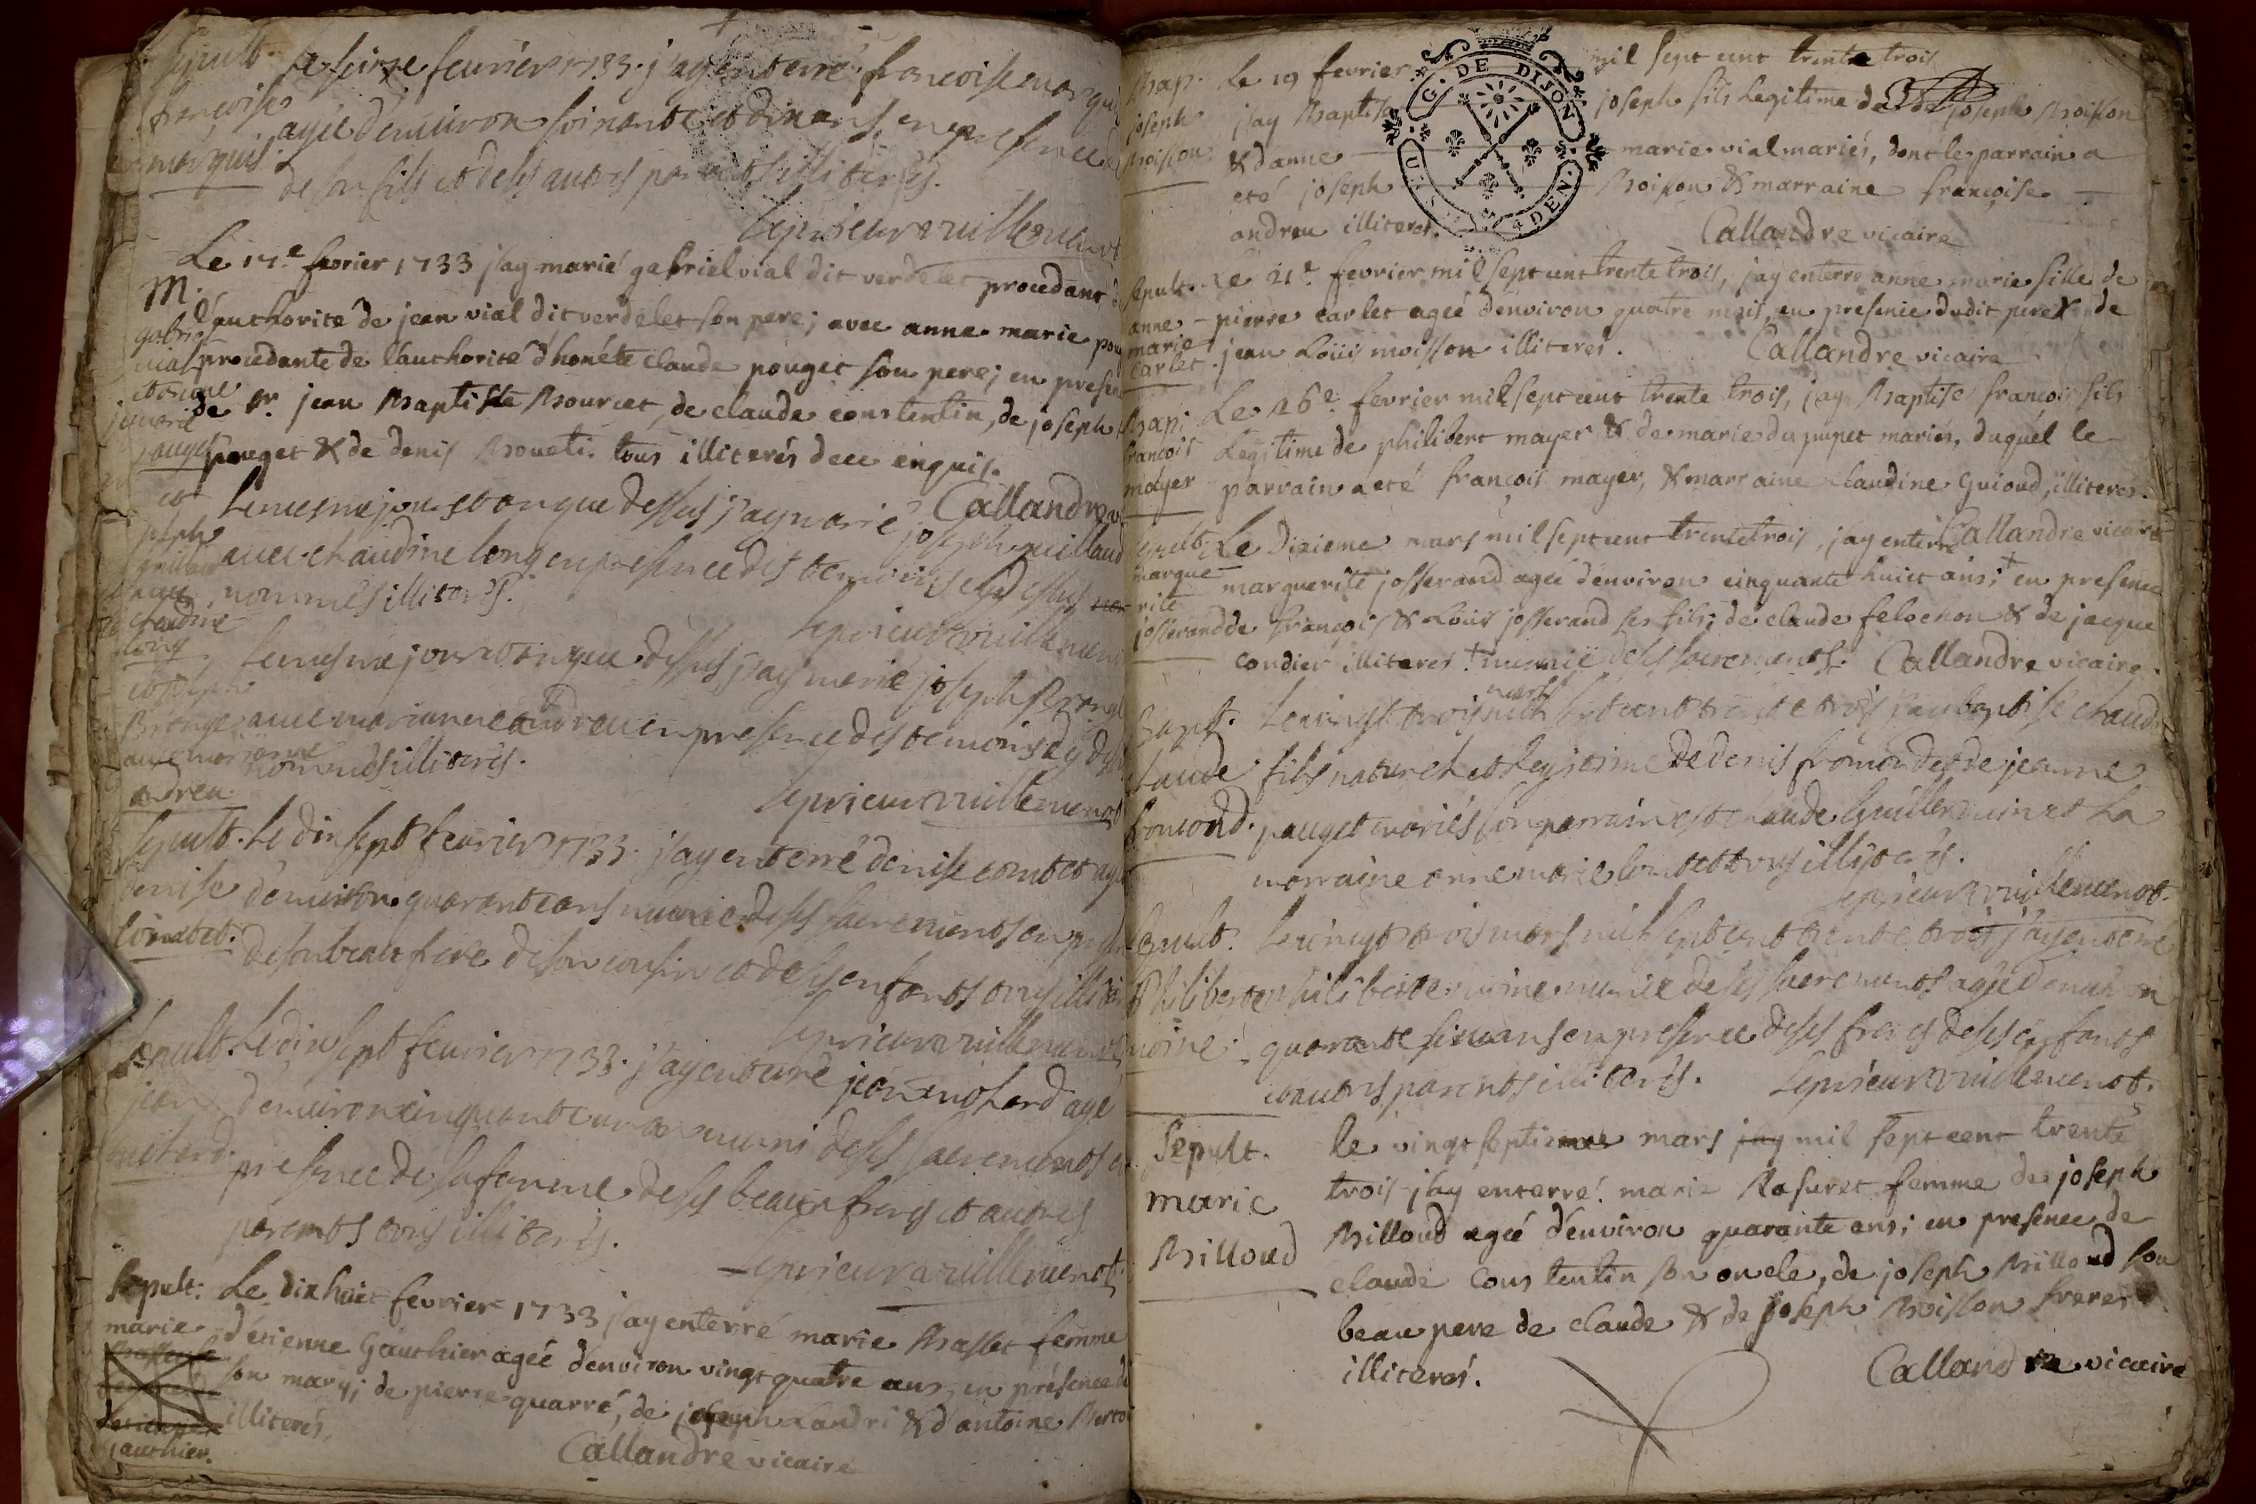 Sepult. Le seize feurier 1733. j'ay enterré francoise marquis
francoise agée d'enuiron soixante et dix ans, en presence
marquis. de son fils et de ses autres parents illiterés.
Le prieur vuillemenot
Le 17.e fevrier 1733 j'ay marié gabriel vial dit verdelet procedant
M. d'authorité de jean vial dit verdelet son pere; avec anne marie
procedante de l'authorité d'honéte claude pouget son pere; en
de Sr. jean Baptiste Bourcet, de claude constentin, de joseph
pouget & de denis tous illiterés de ce enquis.
Callandre
Le mesme jour et an que dessus j'ay marié joseph
auec claudine long en presence des temoins cy dessus
nommés illiterés.
Le prieur vuillemenot
Le mesme jour et an que dessus j'ay marié joseph
auec marianne andreu en presence des temoins cy
andreu nommés illiterés.
Le prieur vuillemenot
Sepult. Le dix sept feurier 1733. j'ay enterré denise contet
denise d'enuiron quarante ans munie de ses sacrements en
contet. de son beau frere de son cousin et de ses enfants tous
Le prieur vuillemenot
Sepult. Le dix sept feurier 1733. j'ay enterré jean moterd agé
jean d'enuiron cinquante ans muni de ses sacrements
moterd. presence de sa femme de ses beaux freres et autres
parents tous illiterés.
Le prieur vuillemenot
Sepult: Le dix huict fevrier 1733 j'ay enterré marie Basset femme
marie d'etienne Gauthier agée d'environ vingt quatre ans, en présence de
son mary; de pierre quarré, de joseph Landri & d'antoine
illiterés.
gauthier.
Callandre vicaire
Bap. Le 19 fevrier mil sept cent trente trois
G. DE DIJON
joseph j'ay Baptisé joseph fils legitime de joseph Boisson
Boisson & d'anne marie vial mariés, dont le parrain a
eté joseph Boisson & marraine francoise
andreu illiterés.
Callandre vicaire
Sepult. Le 21e fevrier mil sept cent trente trois, j'ay enterré anne marie fille de
anne pierre carlet agée d'environ quatre mois, en presence dudit pere & de
marie
carlet. jean Loüis moisson illiterés. Callandre vicaire
Bap: Le 26e fevrier mil sept cent trente trois, j'ay Baptisé francois fils
francois Legitime de philibert mayer & de marie du pupet mariés, duquel le
mayer parrain a eté francois mayer, & marraine claudine Guioud, illiterés.
Callandre vicaire
Sepult. Le Dixieme mars mil sept cent trente trois, j'ay enterré
margue marguerite josserand agée d'environ cinquante huict ans; + en presence
rite
josserand de francois & Loüis josserand ses fils; de claude felochon & de jacque
condier illiterés. + munie de ses sacrements. Callandre vicaire.
Bapt. Le vingt trois mars mil sept cent trente trois j'ay baptisé claude
claude fils naturel et legitime de denis fromond et de jeanne
fromond. pouget mariés son parrain est claude Guillemin et la
marraine anne marie contet tous illiterés.
Le prieur vuillemenot.
Sepult. Le vingt trois mars mil sept cent trente trois j'ay enterré
Philiberte philiberte moine munie de ses sacrements agée d'enuiron
moine. quarante six ans en presence de ses freres de ses enfants
et autres parents illiterés. Le prieur vuillemenot.
Sepult. le vingt septieme mars jay mil sept cent trente
marie trois j'ay enterré marie Rasuret femme de joseph
Billoud Billoud agée d'environ quarante ans; en presence de
claude Constentin son oncle, de joseph Billoud son
beau pere de claude & de joseph Boisson freres
illiterés.
Callandre vicaire